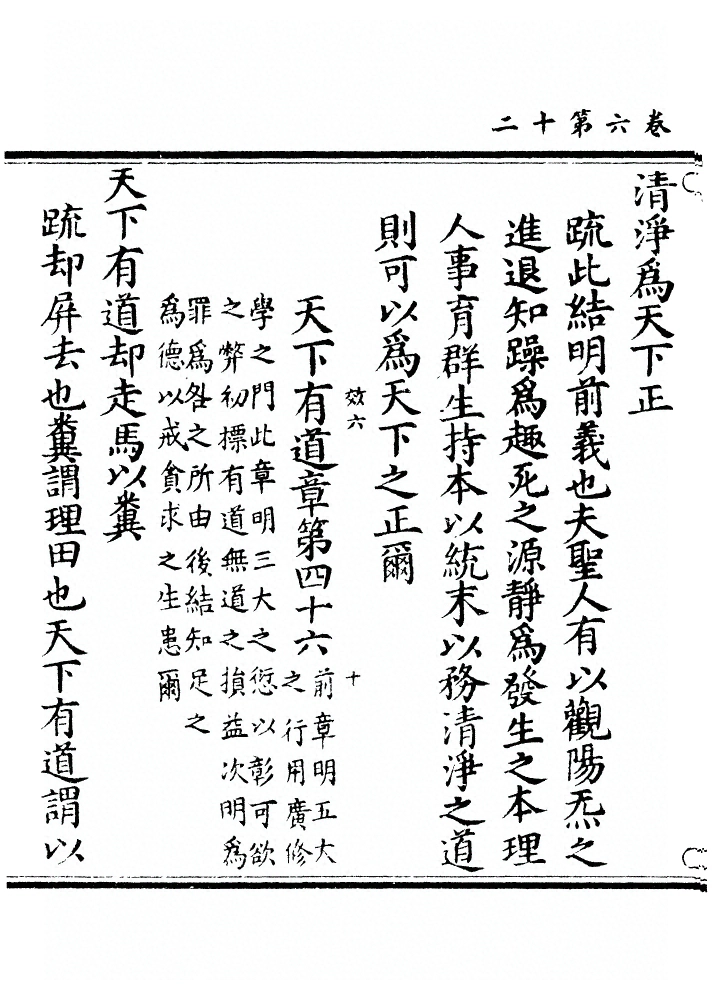 卷六第十二
清淨爲天下正
疏此結明前義也夫聖人有以觀陽炁之
進退知躁爲趣死之源靜爲發生之本理
人事育群生持本以統末以務清淨之道
則可以爲天下之正爾
效六 十
天下有道章第四十六 前章明五大
之行用廣修
學之門此章明三大之愆以彰可欲
之弊初標有道無道之損益次明爲
罪爲咎之所由後結知足之
爲德以戒貪求之生患爾
天下有道却走馬以糞
疏却屏去也糞謂理田也天下有道謂以